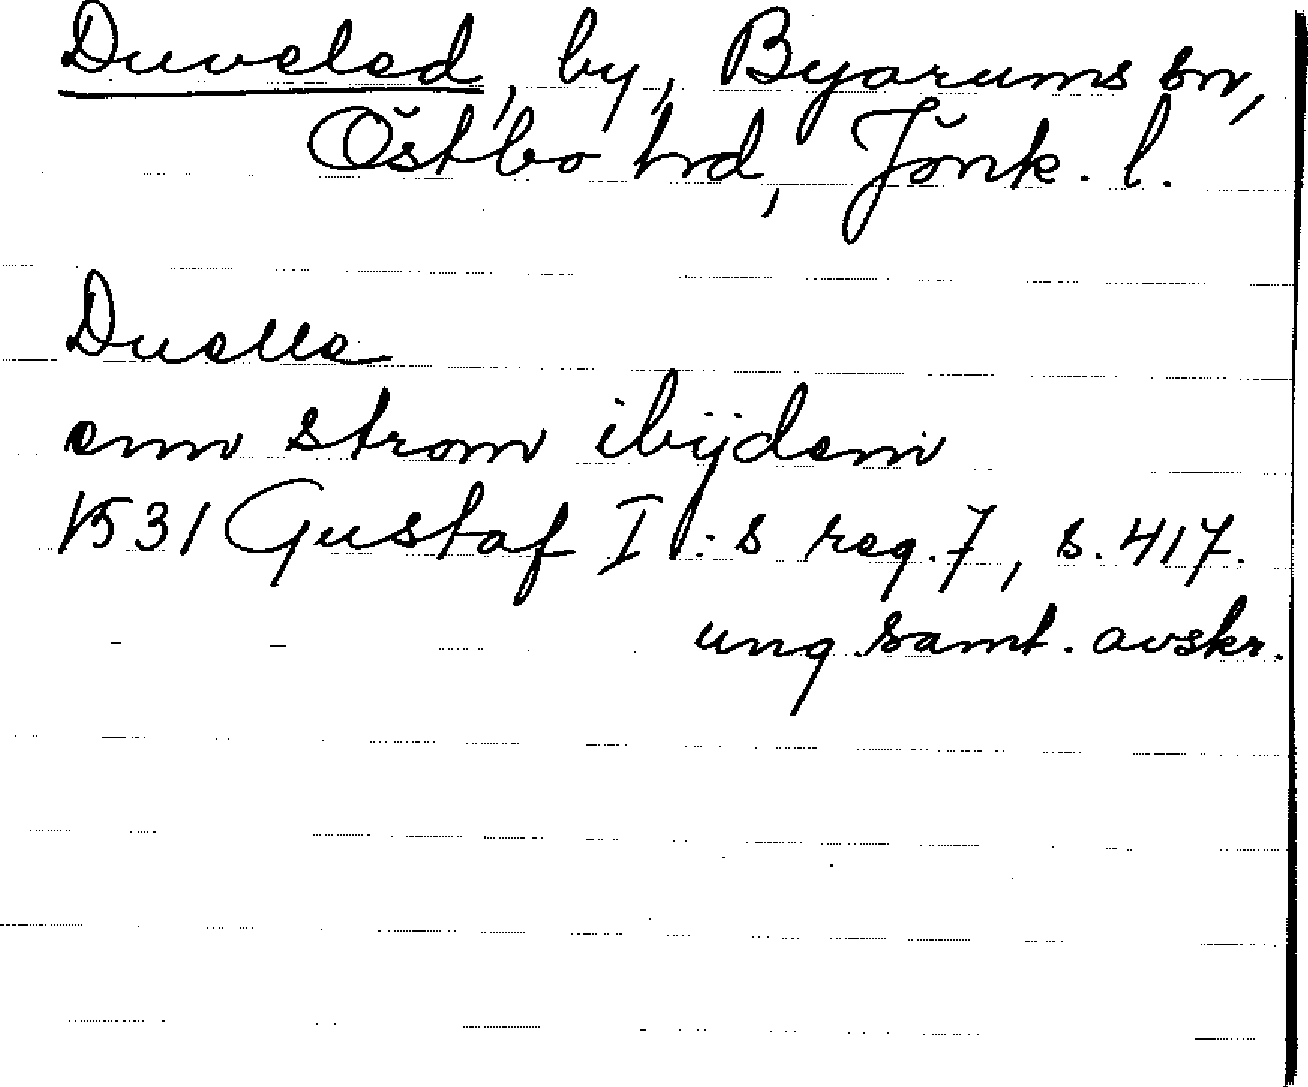 Duveled, by, Byarums sn,
Östbo hrd, Jönk. l.
Duelle
enn strom ibijdem
1531 Gustaf I:s reg. 7, s. 417.
ung. samt. avskr.